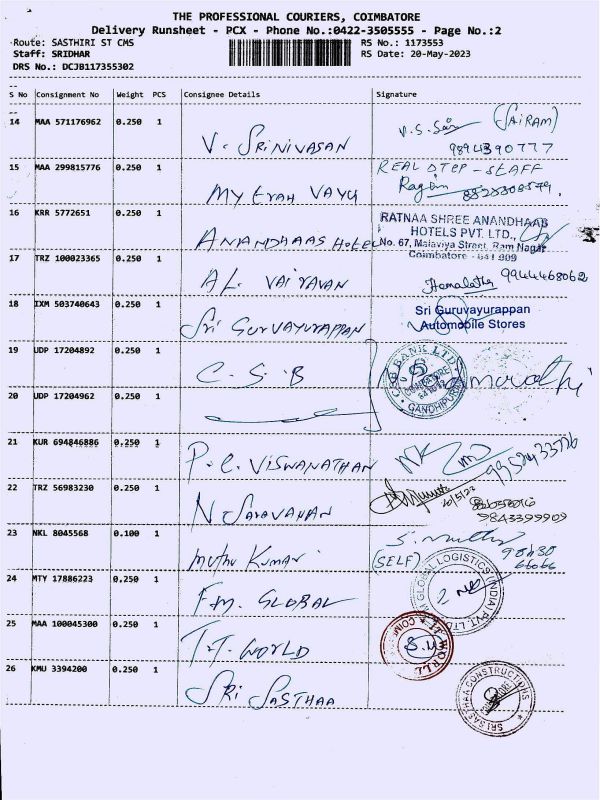 THE PROFESSIONAL COURIERS, COIMBATORE
Delivery Runsheet - PCX - Phone No.:0422-3505555 - Page No.:2
Route: SASTHIRI ST CMS RS No.: 1173553
Staff: SRIDHAR RS Date: 20-May-2023
DRS No.: DCJB117355302
S No Consignment No Weight PCS Consignee Details Signature
14 MAA 571176962 0.250 1 V. SRINIVASAN V.S. (SAIRAM)
9894390777
15 MAA 299815776 0.250 1 REAL STEP - STAFF
16 KRR 5772651 0.250 1 ANANDHAAS HOTEL RATNAA SHREE ANANDHAAS
HOTELS PVT. LTD.,
No. 67, Malaviya Street, Ram Nagar
Coimbatore - 641 009
17 TRZ 100023365 0.250 1 AL. VAIRAVAN Hemalatha 9944468062
18 IXM 503740643 0.250 1 Sri GURUVAYURAPPAN Sri Guruvayurappan
Automobile Stores
19 UDP 17204892 0.250 1 C.S.B CSB BANK LTD
COIMBATORE
GANDHIPURAM
20 UDP 17204962 0.250 1
21 KUR 694846886 0.250 1 P.C. VISWANATHAN
22 TRZ 56983230 0.250 1 N SARAVANAN
9843399909
23 NKL 8045568 0.100 1 Muthu Kumar S. Muthu
(SELF)
24 MTY 17886223 0.250 1 F.M. GLOBAL GLOBAL LOGISTICS (INDIA) PVT. LTD.
25 MAA 100045300 0.250 1 T.T. WORLD
26 KMU 3394200 0.250 1 SRI SASTHAA SRI SASTHAA CONSTRUCTIONS